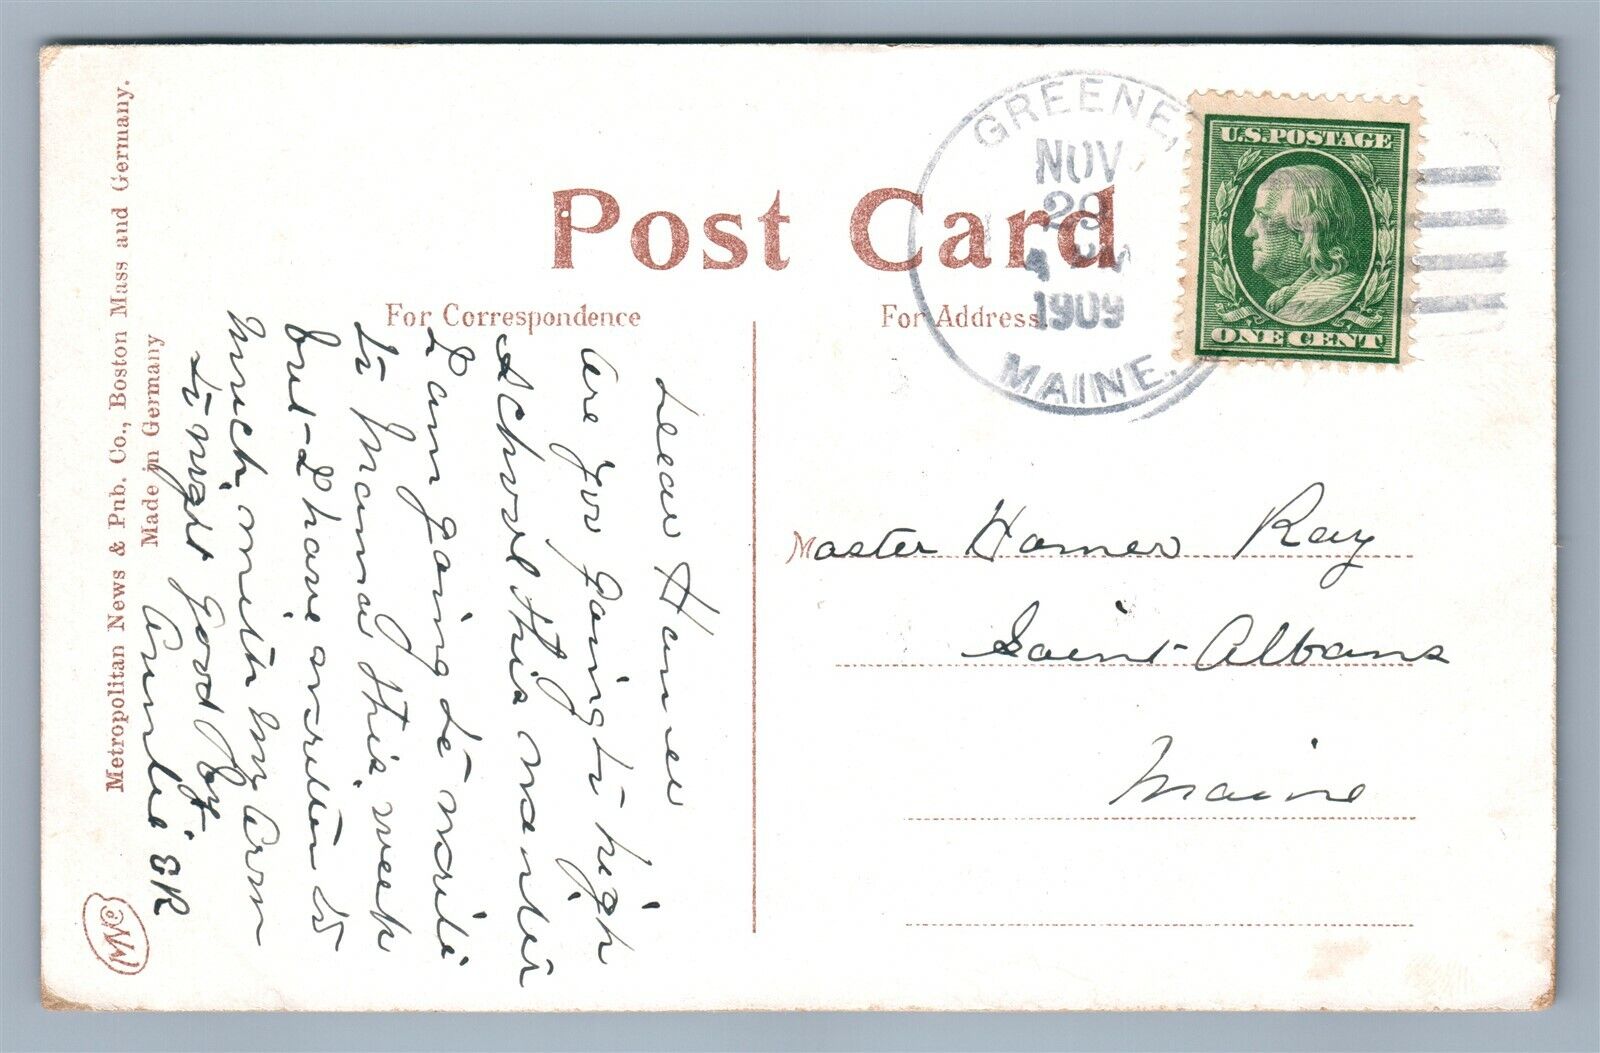 Metropolitan News & Pub. Co., Boston Mass and Germany.
Made in Germany
Post Card
For Correspondence
For Address.
GREENE,
NOV
29
4 PM
1909
MAINE.
U.S. POSTAGE
ONE CENT
Dear Homer
Are you going to high
School this winter
I am going to write
to mama this week
but I have written so
much, my arm
to night good by.
Annie ER
Master Homer Ray
Saint Albans
Maine